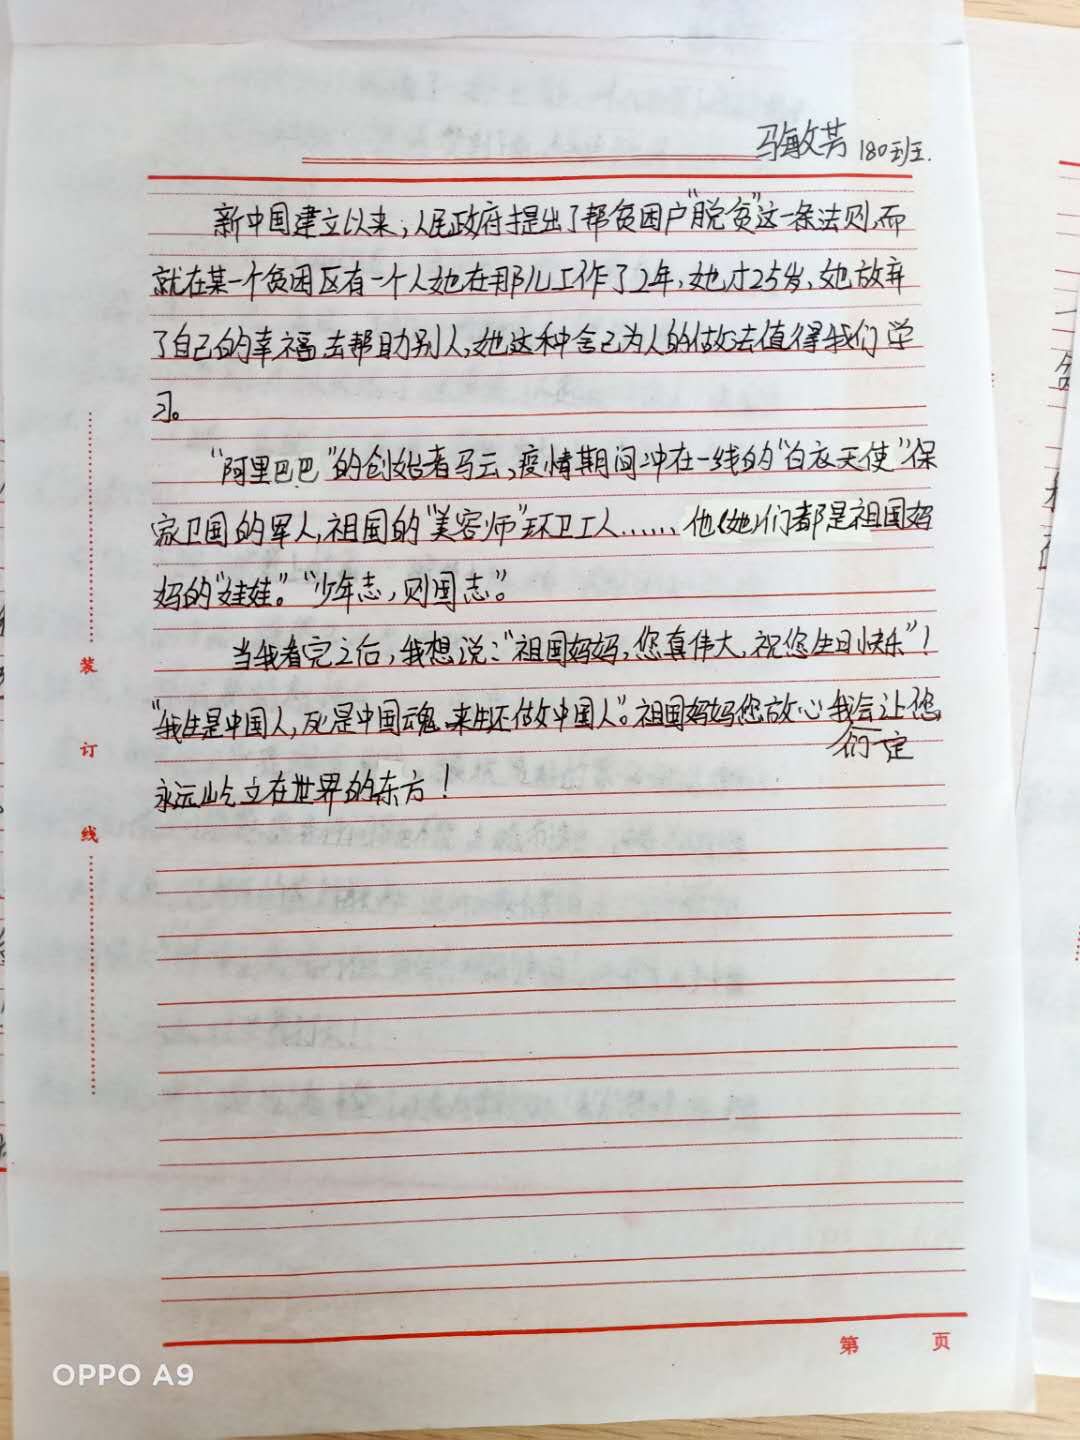 马敏芳 1805班.
新中国建立以来,人民政府提出了帮贫困户"脱贫"这一条法则,而
就在某一个贫困区有一个人她在那儿工作了2年,她才25岁,她放弃
了自己的幸福去帮助别人,她这种舍己为人的做法值得我们学
习。
"阿里巴巴"的创始者马云,疫情期间冲在一线的"白衣天使"保
家卫国的军人,祖国的"美容师"环卫工人……他(她)们都是祖国妈
妈的"娃娃"。"少年志,则国志"。
当我看完之后,我想说:"祖国妈妈,您真伟大,祝您生日快乐"!
"我生是中国人,死是中国魂、来生还做中国人"。祖国妈妈您放心我会让您
们一定
永远屹立在世界的东方!
装
订
线
第 页
OPPO A9